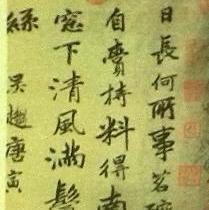 日長何所事茗
自賫持料得南
窓下清風滿鬢
絲 吳趨唐寅